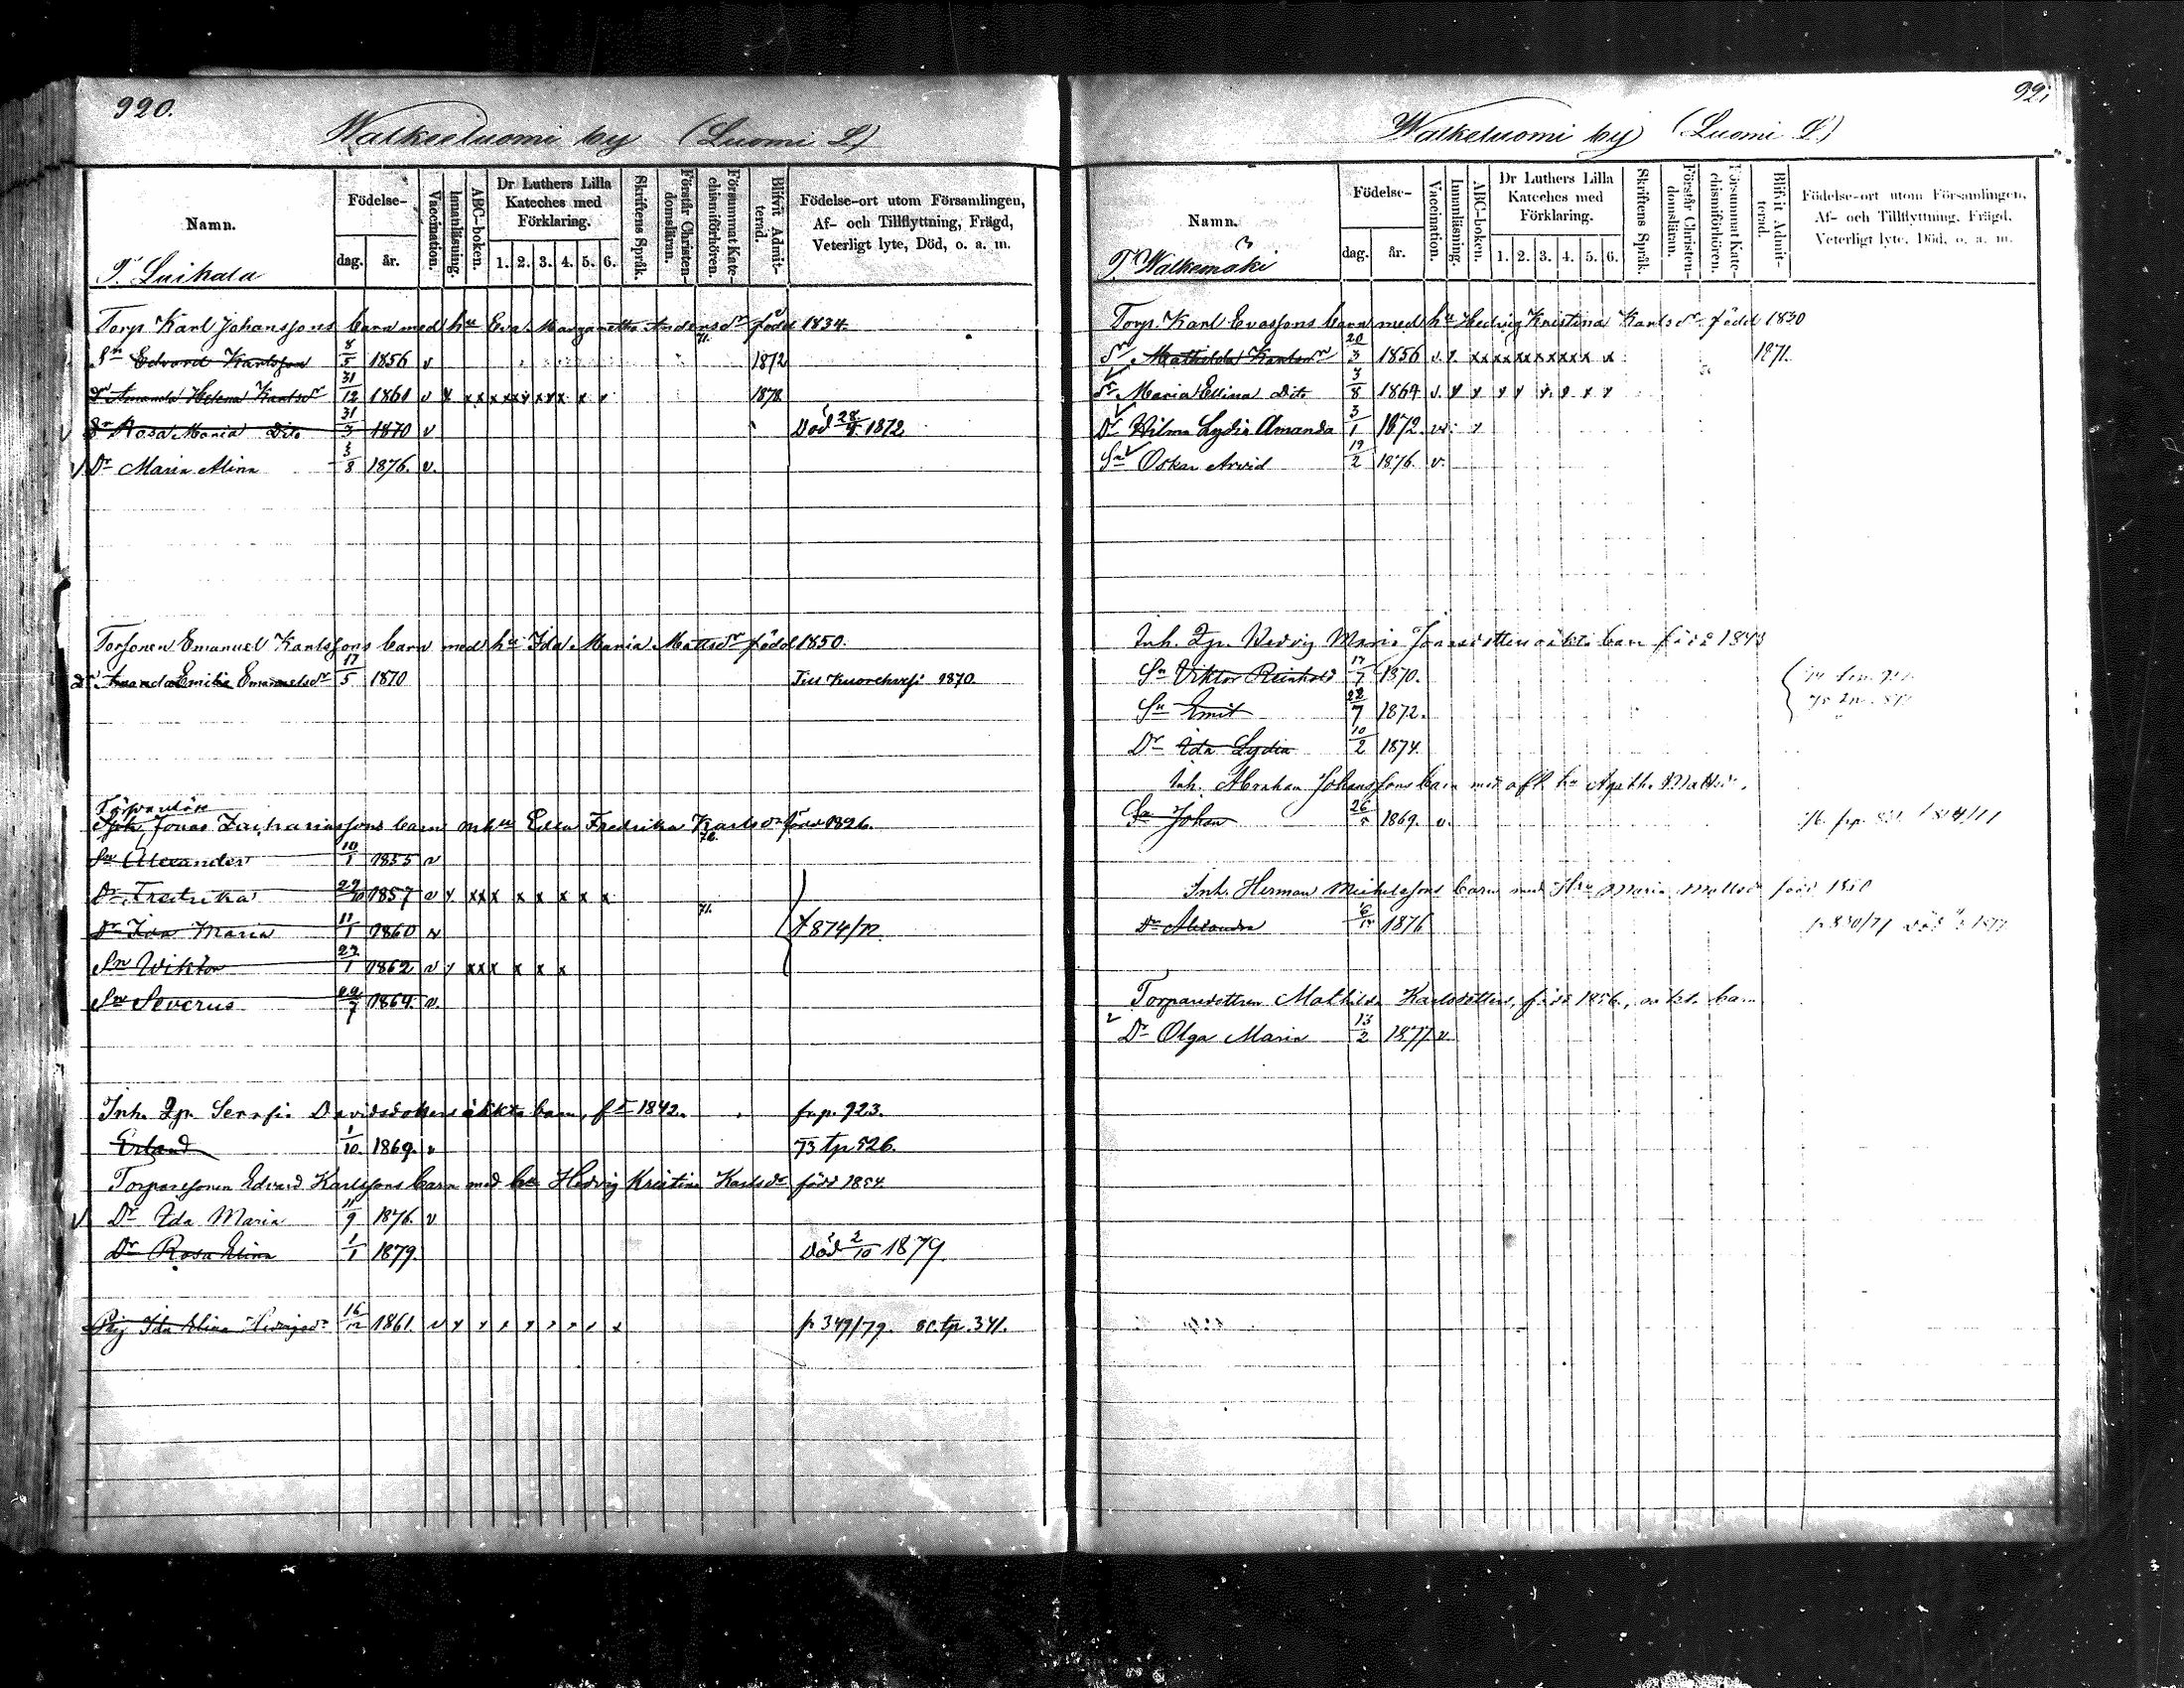 920.
Walkeeluomi by (Luomi L)
Namn.
Födelse-
dag. år.
Vaccination.
Innanläsning.
ABC-boken.
Dr Luthers Lilla Kateches med Förklaring.
1. 2. 3. 4. 5. 6.
Skriftens Språk.
Förstår Christendomsläran.
Försummat Katechismiförhören.
Blifvit Admitterad.
Födelse-ort utom Församlingen, Af- och Tillflyttning, Frägd, Veterligt lyte, Död, o. a. m.
T. Laihala
Torp. Karl Johanssons barn med hu Eva Margaretha Andersdr född 1834.
Sn Edvard Karlsson 8/5 1856 v 71. 1872
Dr Amanda Helena Karlsdr 31/12 1861 v x x x x x x x x x x v 1878
Dr Rosa Maria Dito 31/3 1870 v Död 28/9 1872
v Dr Maria Alina 3/8 1876. v.
Torpsonen Emanuel Karlssons barn med hu Ida Maria Mattsdr född 1850.
Dr Amanda Emilia Emanuelsdr 17/5 1870 Till Kuorehvesi 1870
Förpantare
Jonas Zachariassons barn m hu Edla Fredrika Karlsdr född 1826.
Sn Alexander 10/1 1855 v 72.
Dr Fredrika 29/10 1857 v x x x x x x x x x
Dr Ida Maria 11/1 1860 v 71. t 874/72
Sn Wiktor 27/1 1862 v x x x x x x x
Sn Severus 1864. v.
Inh. Qp. Serafia Davidsdotters oäkta barn, fd 1842. fr. p. 923.
Erland 1/10 1869. v 73 tp 926.
Torparesonen Edvard Karlssons barn med hu Hedvig Kristina Karlsdr född 1854
v Dr Ida Maria 11/9 1876. v
Dr Rosa Elina 1/1 1879. Död 2/10 1879.
Pig Ida Alina Hedvigsdr 16/12 1861. v x x x x x x x x fr 349/79. 80. tp. 341.
921
Walkeluomi by (Luomi L.)
Namn.
Födelse-
dag. år.
Vaccination.
Innanläsning.
ABC-boken.
Dr Luthers Lilla Kateches med Förklaring.
1. 2. 3. 4. 5. 6.
Skriftens Språk.
Förstår Christendomsläran.
Försummat Katechismiförhören.
Blifvit Admitterad.
Födelse-ort utom Församlingen, Af- och Tillflyttning, Frägd, Veterligt lyte, Död, o. a. m.
T. Walkemäki
Torp. Karl Evassons barn med hu Hedvig Kristina Karlsdr född 1830
Mathilda Karlsdr 20/3 1856 v. x. x x x x x x x x x x x 1871.
Dr Maria Elina Dito 3/8 1864 v. x x x x x x x x
Dr Wilma Lydia Amanda 3/1 1872. v. x
Sn Oskar Arvid 19/2 1876. v.
Inh. Qp. Hedvig Maria oäkta barn född 1843
Sn Viktor Reinhold 17/7 1870.
Sn Emil 22/7 1872.
Dr Ida Lydia 10/2 1874.
Inh. Abraham Johanssons barn med afl. hu Agatha Mattsdr.
Sn Johan 1869. v.
Inh. Herman Mickelssons barn med Hu Maria Mattsdr född 1850
Dr Alexandra 1876
Torparedottren Mathilda Karlsdotters, född 1856, oäkta barn
v Dr Olga Maria 13/2 1877 v.